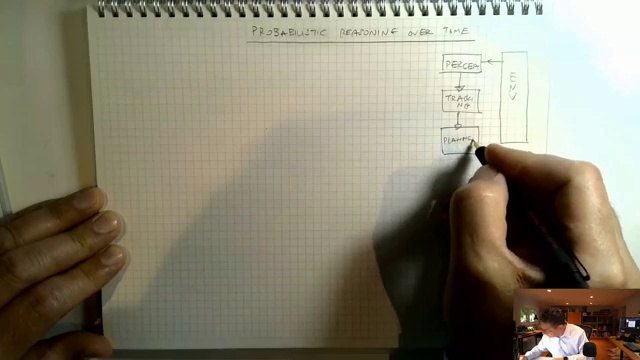 PROBABILISTIC REASONING OVER TIME
PERCEP
ENV
TRACKI
NG
PLANNING